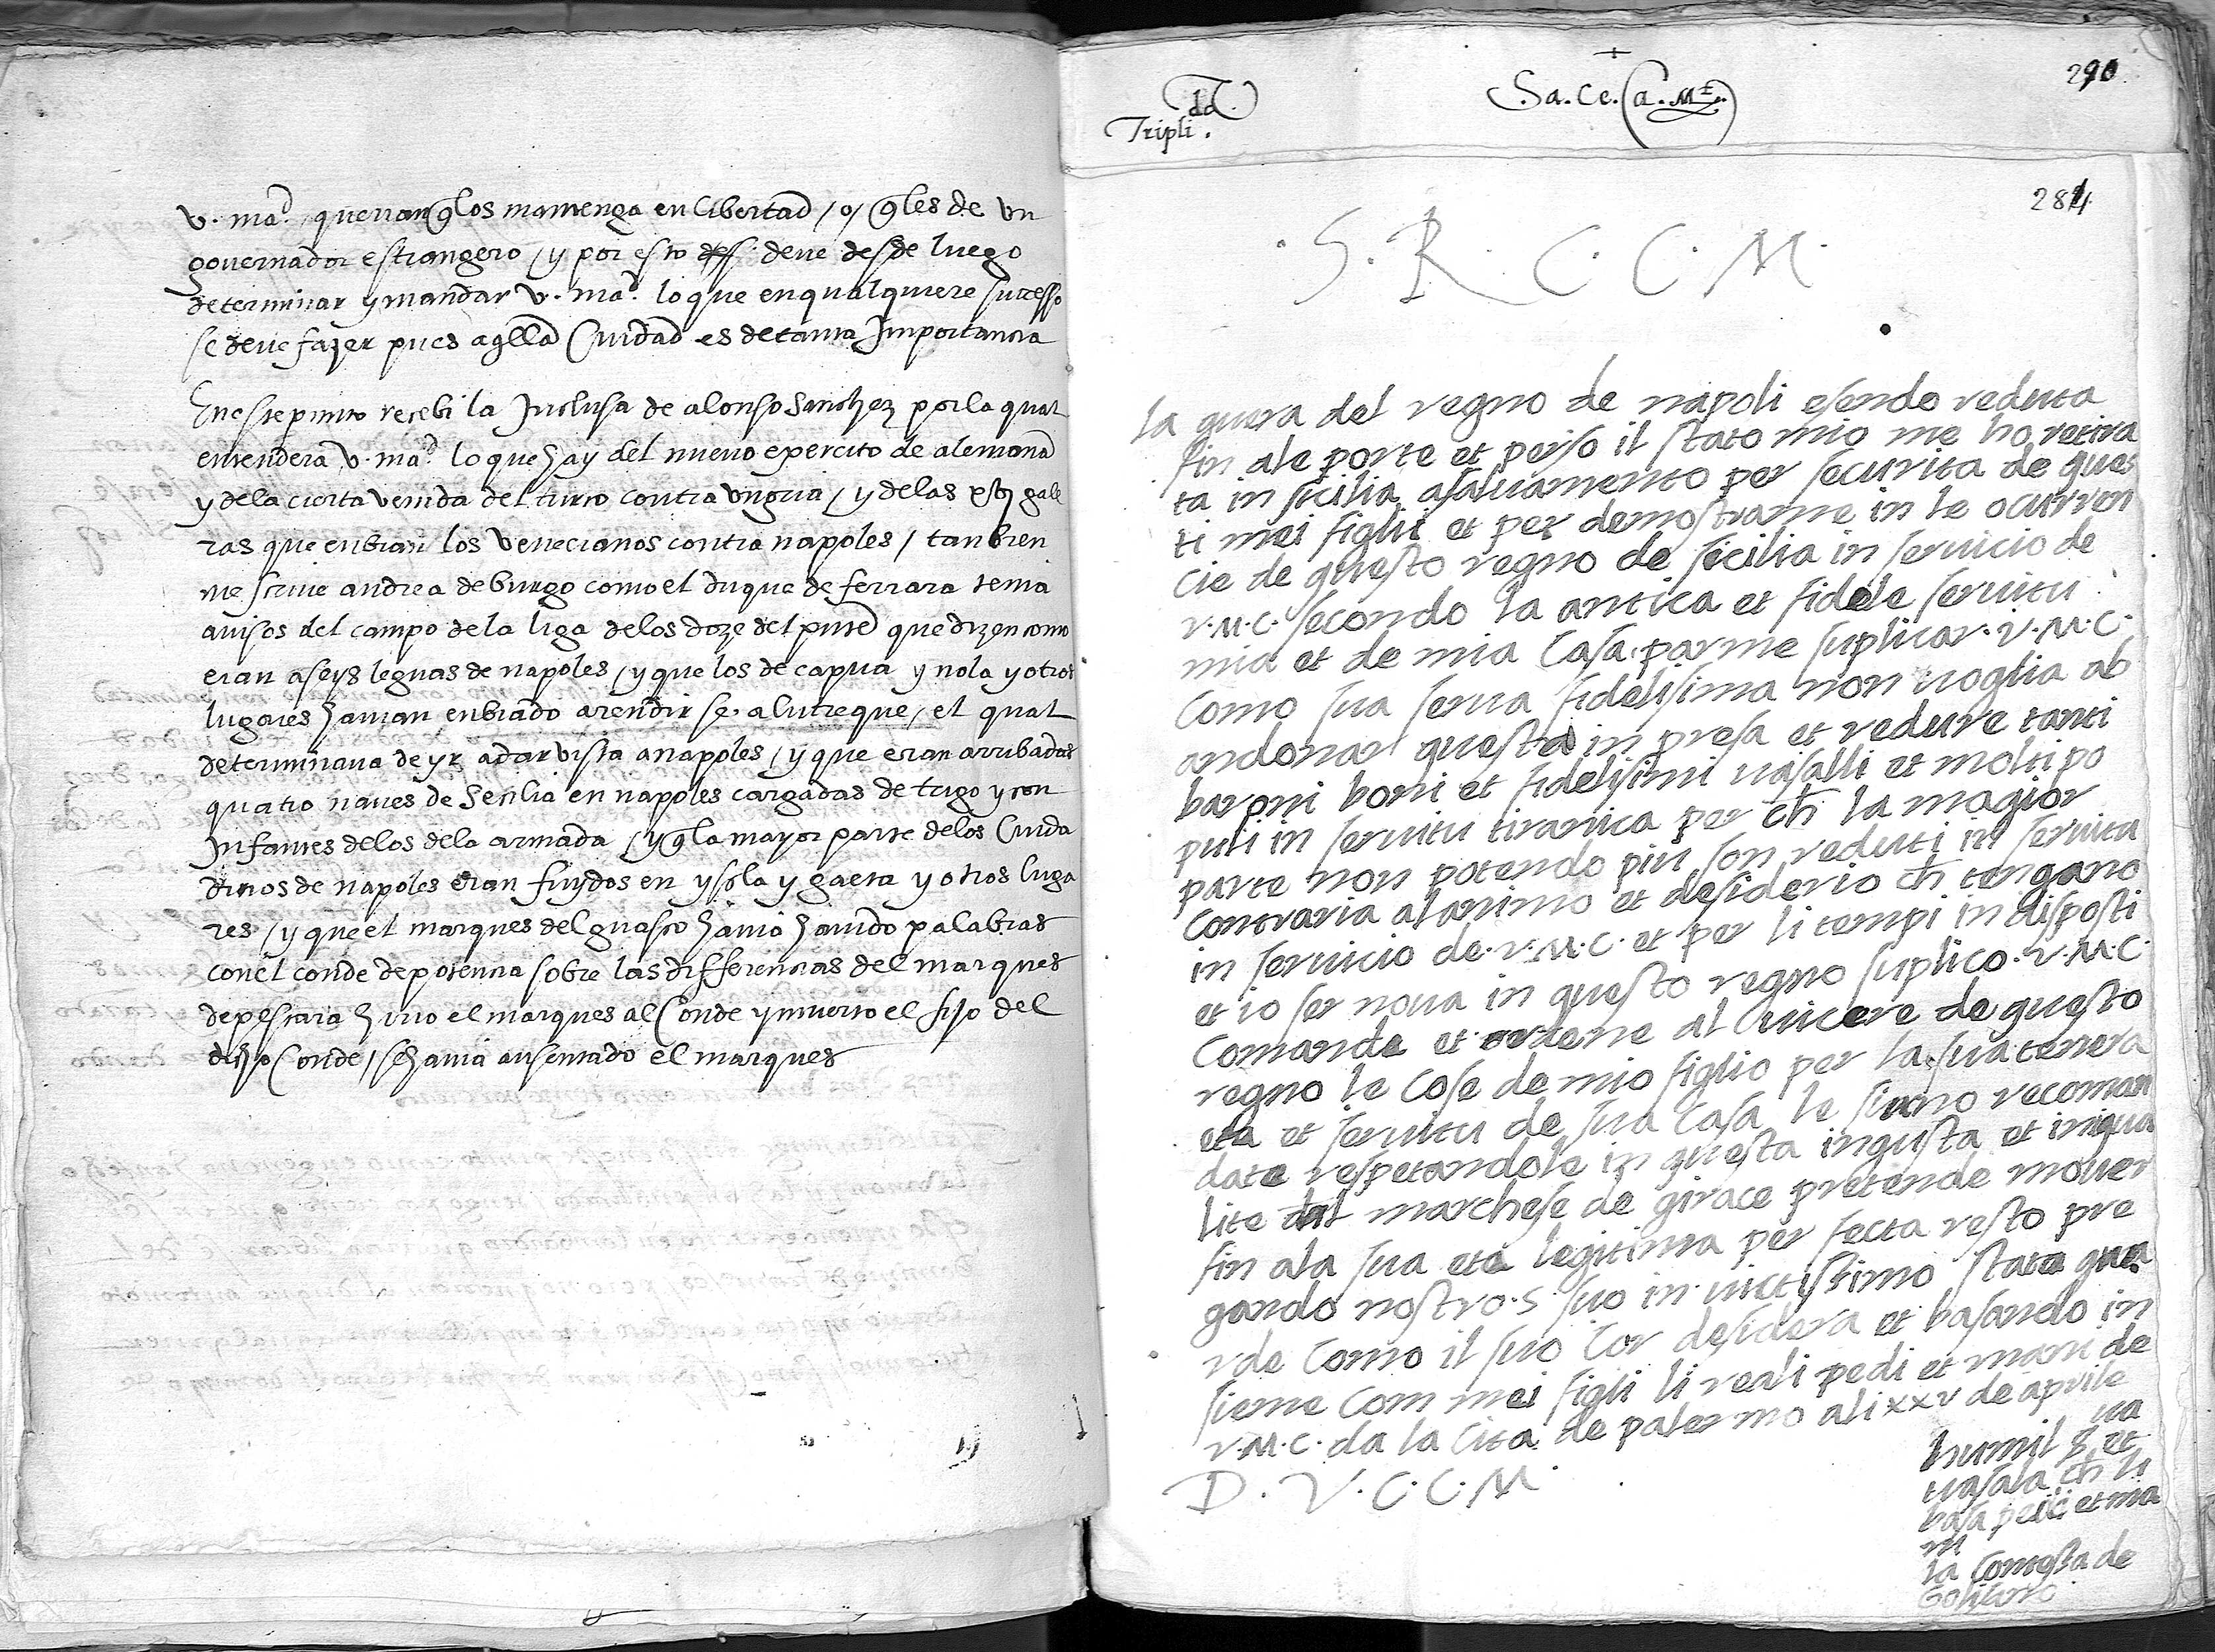 v. mad. querran q̃ los mantenga en libertad / o / q̃ les de un
governador estrangero / y por esto deve desde luego
determinar y mandar v. mad. lo que en qualquiere sucesso
se deve fazer pues aq̃lla Ciudad es de tanta Importancia
En este punto recebi la Inclusa de alonso sanchez por la qual
entendera v. mad. lo que hay del nuevo exercito de alemana
y dela cierta venida del turco contra ungria / y delas gale
ras que enbian los venecianos contra napoles / tanbien
me scrive andrea de burgo como el duque de ferrara tenia
avisos del campo dela liga delos doze del que dizen como
eran a seys leguas de napoles / y que los de capua y nola y otros
lugares havian enbiado a rendir se a lutreque / et qual
determinava de yr a dar vista a napoles / y que eran arribadas
quatro naves de Secilia en napoles cargadas de trigo y con
Infantes delos dela armada / y q̃ la mayor parte delos Ciuda
dinos de napoles eran fuydos en ysola y gaeta y otros luga
res / y que el marques del guasto havia havido palabras
con el conde de potencia sobre las differencias del marques
de pescara hirio el marques al Conde y muerto el fijo del
dicho Conde / se havia ausentado el marques
+
Sa. Ce. Ca. Mt.
290
Tripli.da
284
. S. R. C. C. M.
la guera del regno de napoli esendo reduta
fin ale porte et perso il stato mio me ho retira
ta in sicilia asalvamento per securita de ques
ti mei figlii et per demostrarme in le ocurren
cie de questo regno de sicilia in servicio de
v. M. C. secondo la antica et fidele servitu
mia et de mia Casa parme suplicar. v. M. C.
Como sua serva fidelisima non voglia ab
andonar questa in presa et redure tanti
baroni boni et fidelisimi vasalli et molti po
puli in servitu tiranica per ch la magior
parte non potendo piu son reduti in servitu
Contraria al animo et desiderio ch tengano
in servicio de. v. M. C. et per li tempi indisposti
et io ser nova in questo regno suplico. v. M. C.
Comande et ordene al vicere de questo
regno le Cose de mio figlio per la sua tenera
eta et servitu de sua Casa le siano recoman
date respetandole in questa ingusta et iniqua
lite dal marchese de girace pretende mover
fin ala sua eta legitima per fecta resto pre
gando nostro. S. suo in victissimo stato gua
rde Como il suo Cor desidera et basando in
sieme Com mei figli li reali pedi et mani de
v. M. C. da la Cita de palermo ali xxv de aprile
D. V. C. C. M.
humil et
vasala ch li
basa pedi et ma
ni
la Contessa de
Golisano